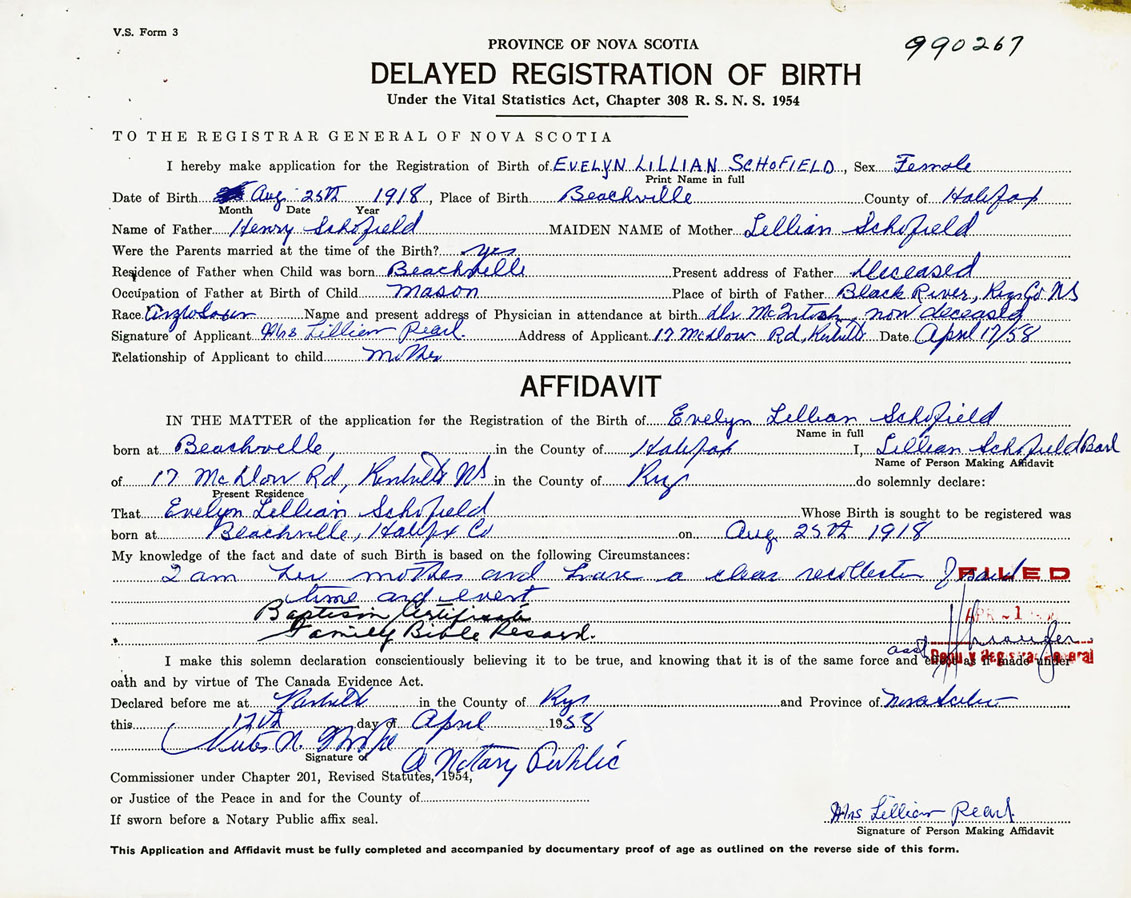 V.S. Form 3
990267
PROVINCE OF NOVA SCOTIA
DELAYED REGISTRATION OF BIRTH
Under the Vital Statistics Act, Chapter 308 R. S. N. S. 1954
TO THE REGISTRAR GENERAL OF NOVA SCOTIA
I hereby make application for the Registration of Birth of EVELYN LILLIAN SCHOFIELD, Sex Female
Print Name in full
Date of Birth Aug 25th 1918, Place of Birth Beachville County of Halifax
Month Date Year
Name of Father Henry Schofield MAIDEN NAME of Mother Lillian Schofield
Were the Parents married at the time of the Birth? yes
Residence of Father when Child was born Beachville Present address of Father Deceased
Occupation of Father at Birth of Child Mason Place of birth of Father Black River, Kings Co NS
Race Anglo Saxon Name and present address of Physician in attendance at birth Dr. McIntosh, now deceased
Signature of Applicant Mrs Lillian Pearl Address of Applicant 17 Rd, Date April 17/58
Relationship of Applicant to child Mother
AFFIDAVIT
IN THE MATTER of the application for the Registration of the Birth of Evelyn Lillian Schofield
Name in full
born at Beachville, in the County of Halifax I, Lillian Schofield Pearl
Name of Person Making Affidavit
of 17 Rd, NS in the County of Kings do solemnly declare:
Present Residence
That Evelyn Lillian Schofield Whose Birth is sought to be registered was
born at Beachville, Halifx Co on Aug 25th 1918
My knowledge of the fact and date of such Birth is based on the following Circumstances:
I am her mother and have a clear recollection of said
time and event
Baptism Certificate
Family Bible Record.
FILED
APR
asst
Deputy Registrar General
I make this solemn declaration conscientiously believing it to be true, and knowing that it is of the same force and effect as if made under
oath and by virtue of The Canada Evidence Act.
Declared before me at in the County of Kings and Province of Nova Scotia
this 17th day of April 1958
Signature of A Notary Public
Commissioner under Chapter 201, Revised Statutes, 1954,
or Justice of the Peace in and for the County of
If sworn before a Notary Public affix seal.
Mrs Lillian Pearl
Signature of Person Making Affidavit
This Application and Affidavit must be fully completed and accompanied by documentary proof of age as outlined on the reverse side of this form.